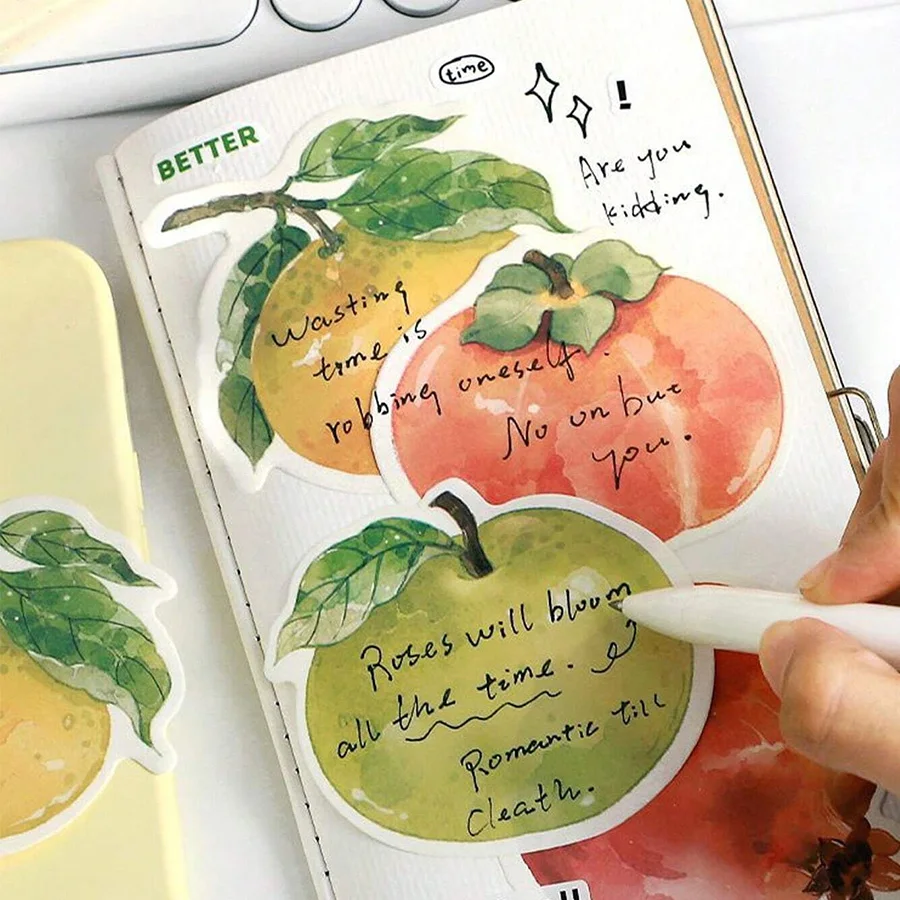 time
BETTER
!
Are you
kidding.
Wasting
time is
robbing oneself.
No on but
you.
Roses will bloom
all the time.
Romantic till
death.
!!